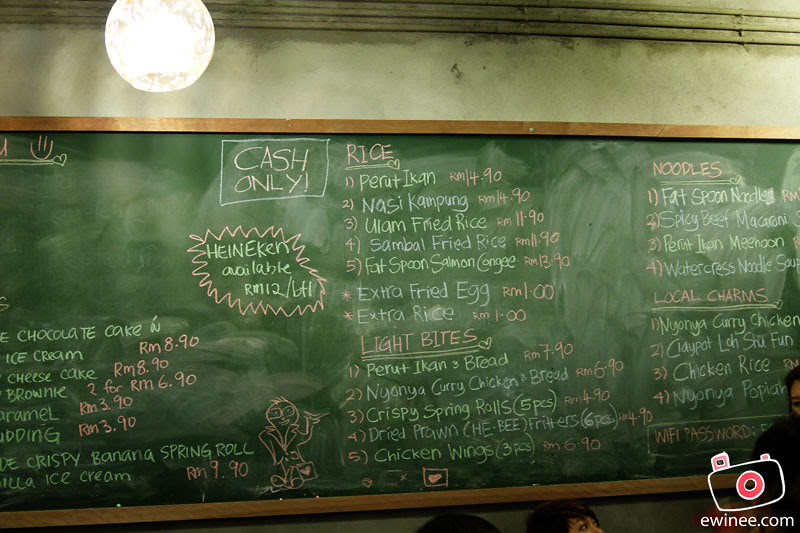 CASH
ONLY!
HEINEKEN
available
RM12/btl
CHOCOLATE CAKE ń
ICE CREAM RM 8.90
CHEESE CAKE RM8.90
BROWNIE 2 for RM 6.90
RM3.90
RM3.90
CRISPY BANANA SPRING ROLL
ICE CREAM RM 9.90
RICE
1) Perut Ikan RM14.90
2) Nasi Kampung RM14.90
3) Ulam Fried Rice RM11.90
4) Sambal Fried Rice RM11.90
5) Fat Spoon Salmon Congee RM13.90
* Extra Fried Egg RM1.00
* Extra Rice RM1.00
LIGHT BITES
1) Perut Ikan & Bread RM7.90
2) Nyonya Curry Chicken & Bread RM6.90
3) Crispy Spring Rolls (5pcs) RM4.90
4) Dried Prawn (HE-BEE) Fritters (6pcs) RM4.90
5) Chicken Wings (3pcs) RM6.90
NOODLES
1) Fat Spoon Noodles
2) Spicy Beef Macaroni
3) Perut Ikan Meehoon
4) Watercress Noodle Soup
LOCAL CHARMS
1) Nyonya Curry Chicken
2) Claypot Loh Shu Fun
3) Chicken Rice RM
4) Nyonya Popiah
WIFI PASSWORD:
ewinee.com